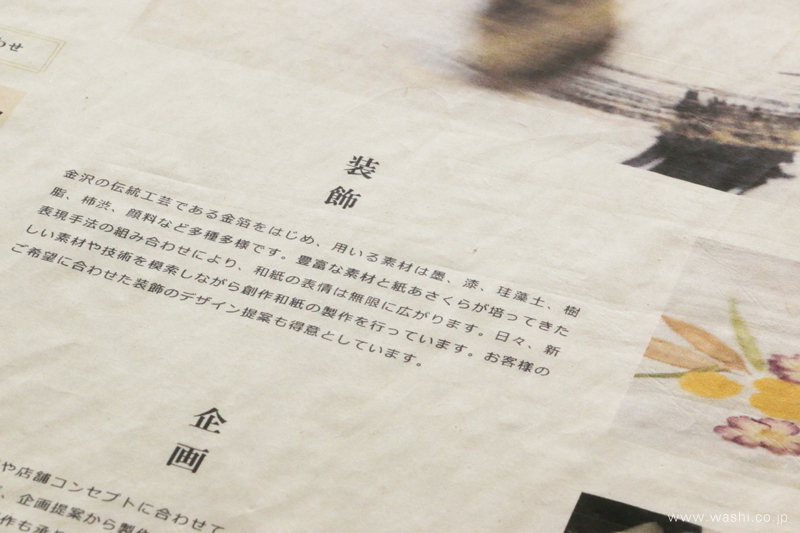 わせ
装飾
金沢の伝統工芸である金箔をはじめ、用いる素材は墨、漆、珪藻土、樹
脂、柿渋、顔料など多種多様です。豊富な素材と紙あさくらが培ってきた
表現手法の組み合わせにより、和紙の表情は無限に広がります。日々、新
しい素材や技術を模索しながら創作和紙の製作を行っています。お客様の
ご希望に合わせた装飾のデザイン提案も得意としています。
企画
や店舗コンセプトに合わせて
、企画提案から製作
作も承
www.washi.co.jp